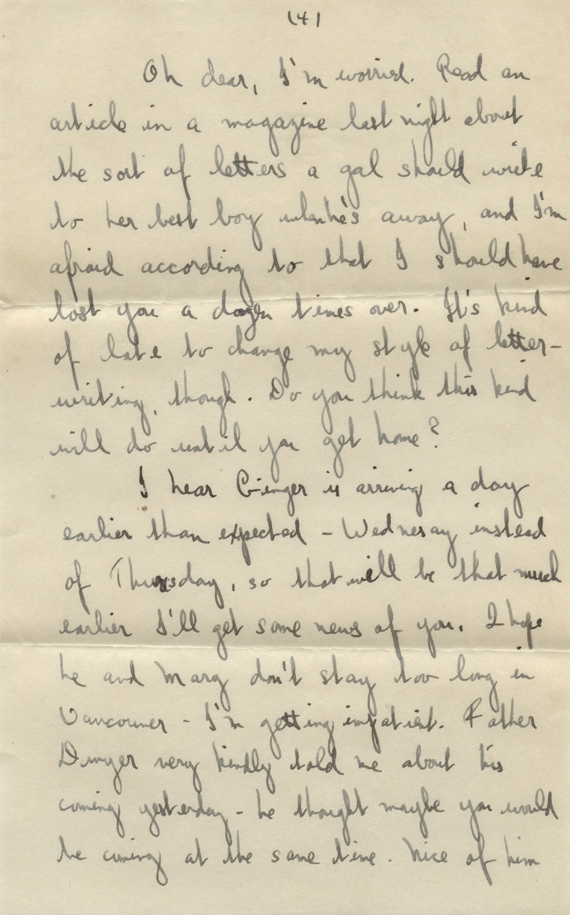 (4)
Oh dear, I'm worried. Read an
article in a magazine last night about
the sort of letters a gal should write
to her best boy when he's away, and I'm
afraid according to that I should have
lost you a dozen times over. It's kind
of late to change my style of letter-
writing, though. Do you think this kind
will do until you get home?
I hear Ginger is arriving a day
earlier than expected - Wednesay instead
of Thursday, so that will be that much
earlier I'll get some news of you. I hope
he and Marg don't stay too long in
Vancouver - I'm getting impatient. Father
Dwyer very kindly told me about his
coming yesterday - he thought maybe you would
be coming at the same time. Nice of him